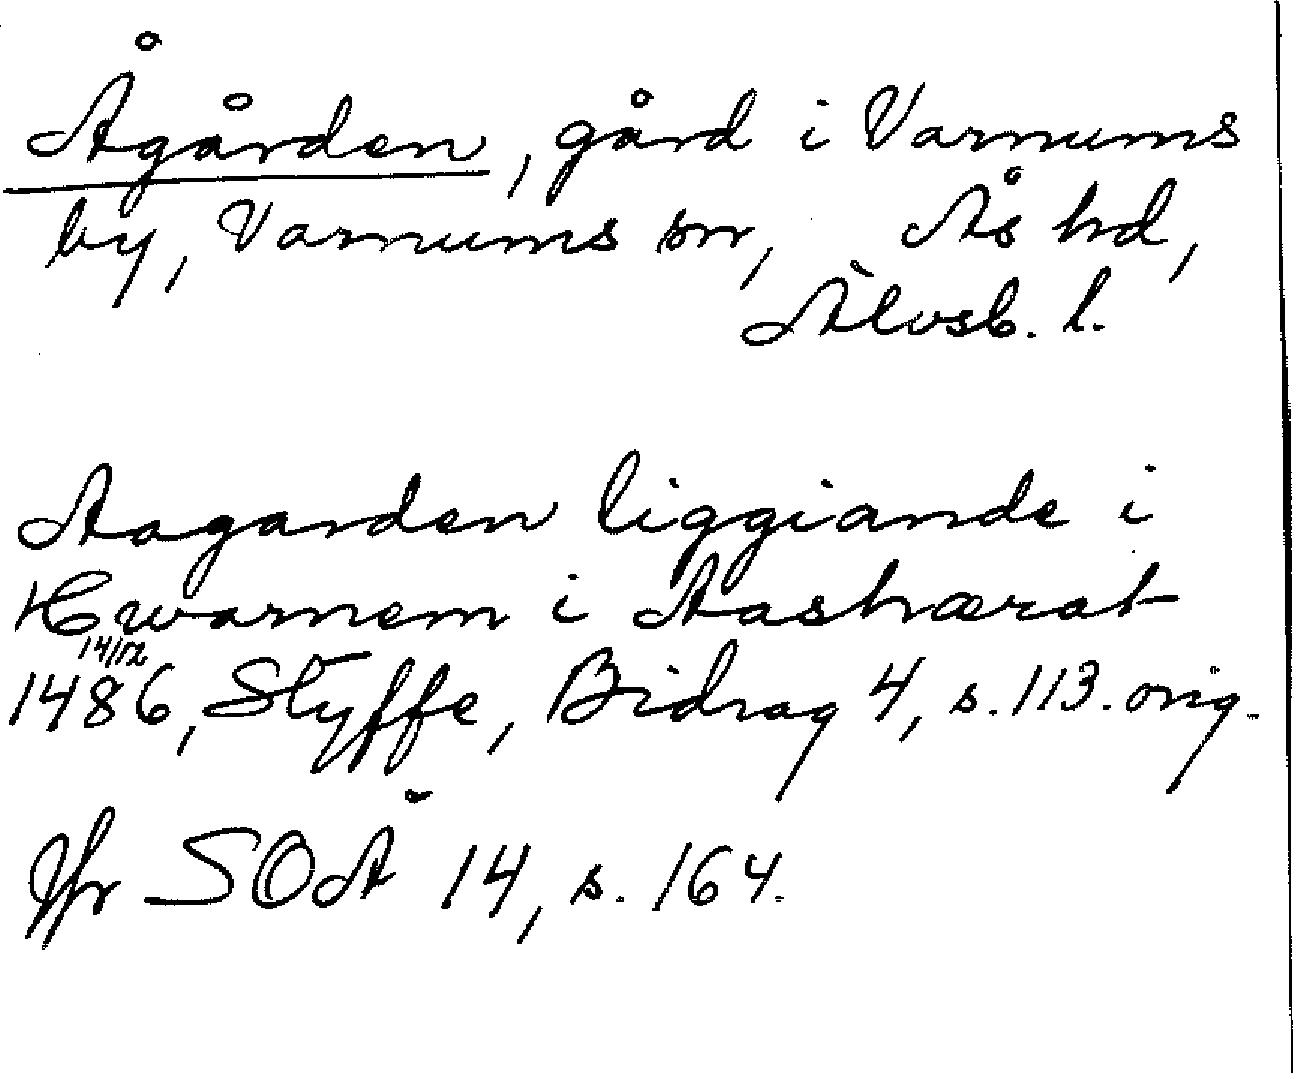 Ågården, gård i Varnums
by, Varnums sn, Ås hd,
Älvsb. l.
Aagarden liggiande i
Hwarnem i Aashærat
14/12
1486, Styffe, Bidrag 4, s. 113. orig.
Jfr SOÄ 14, s. 164.